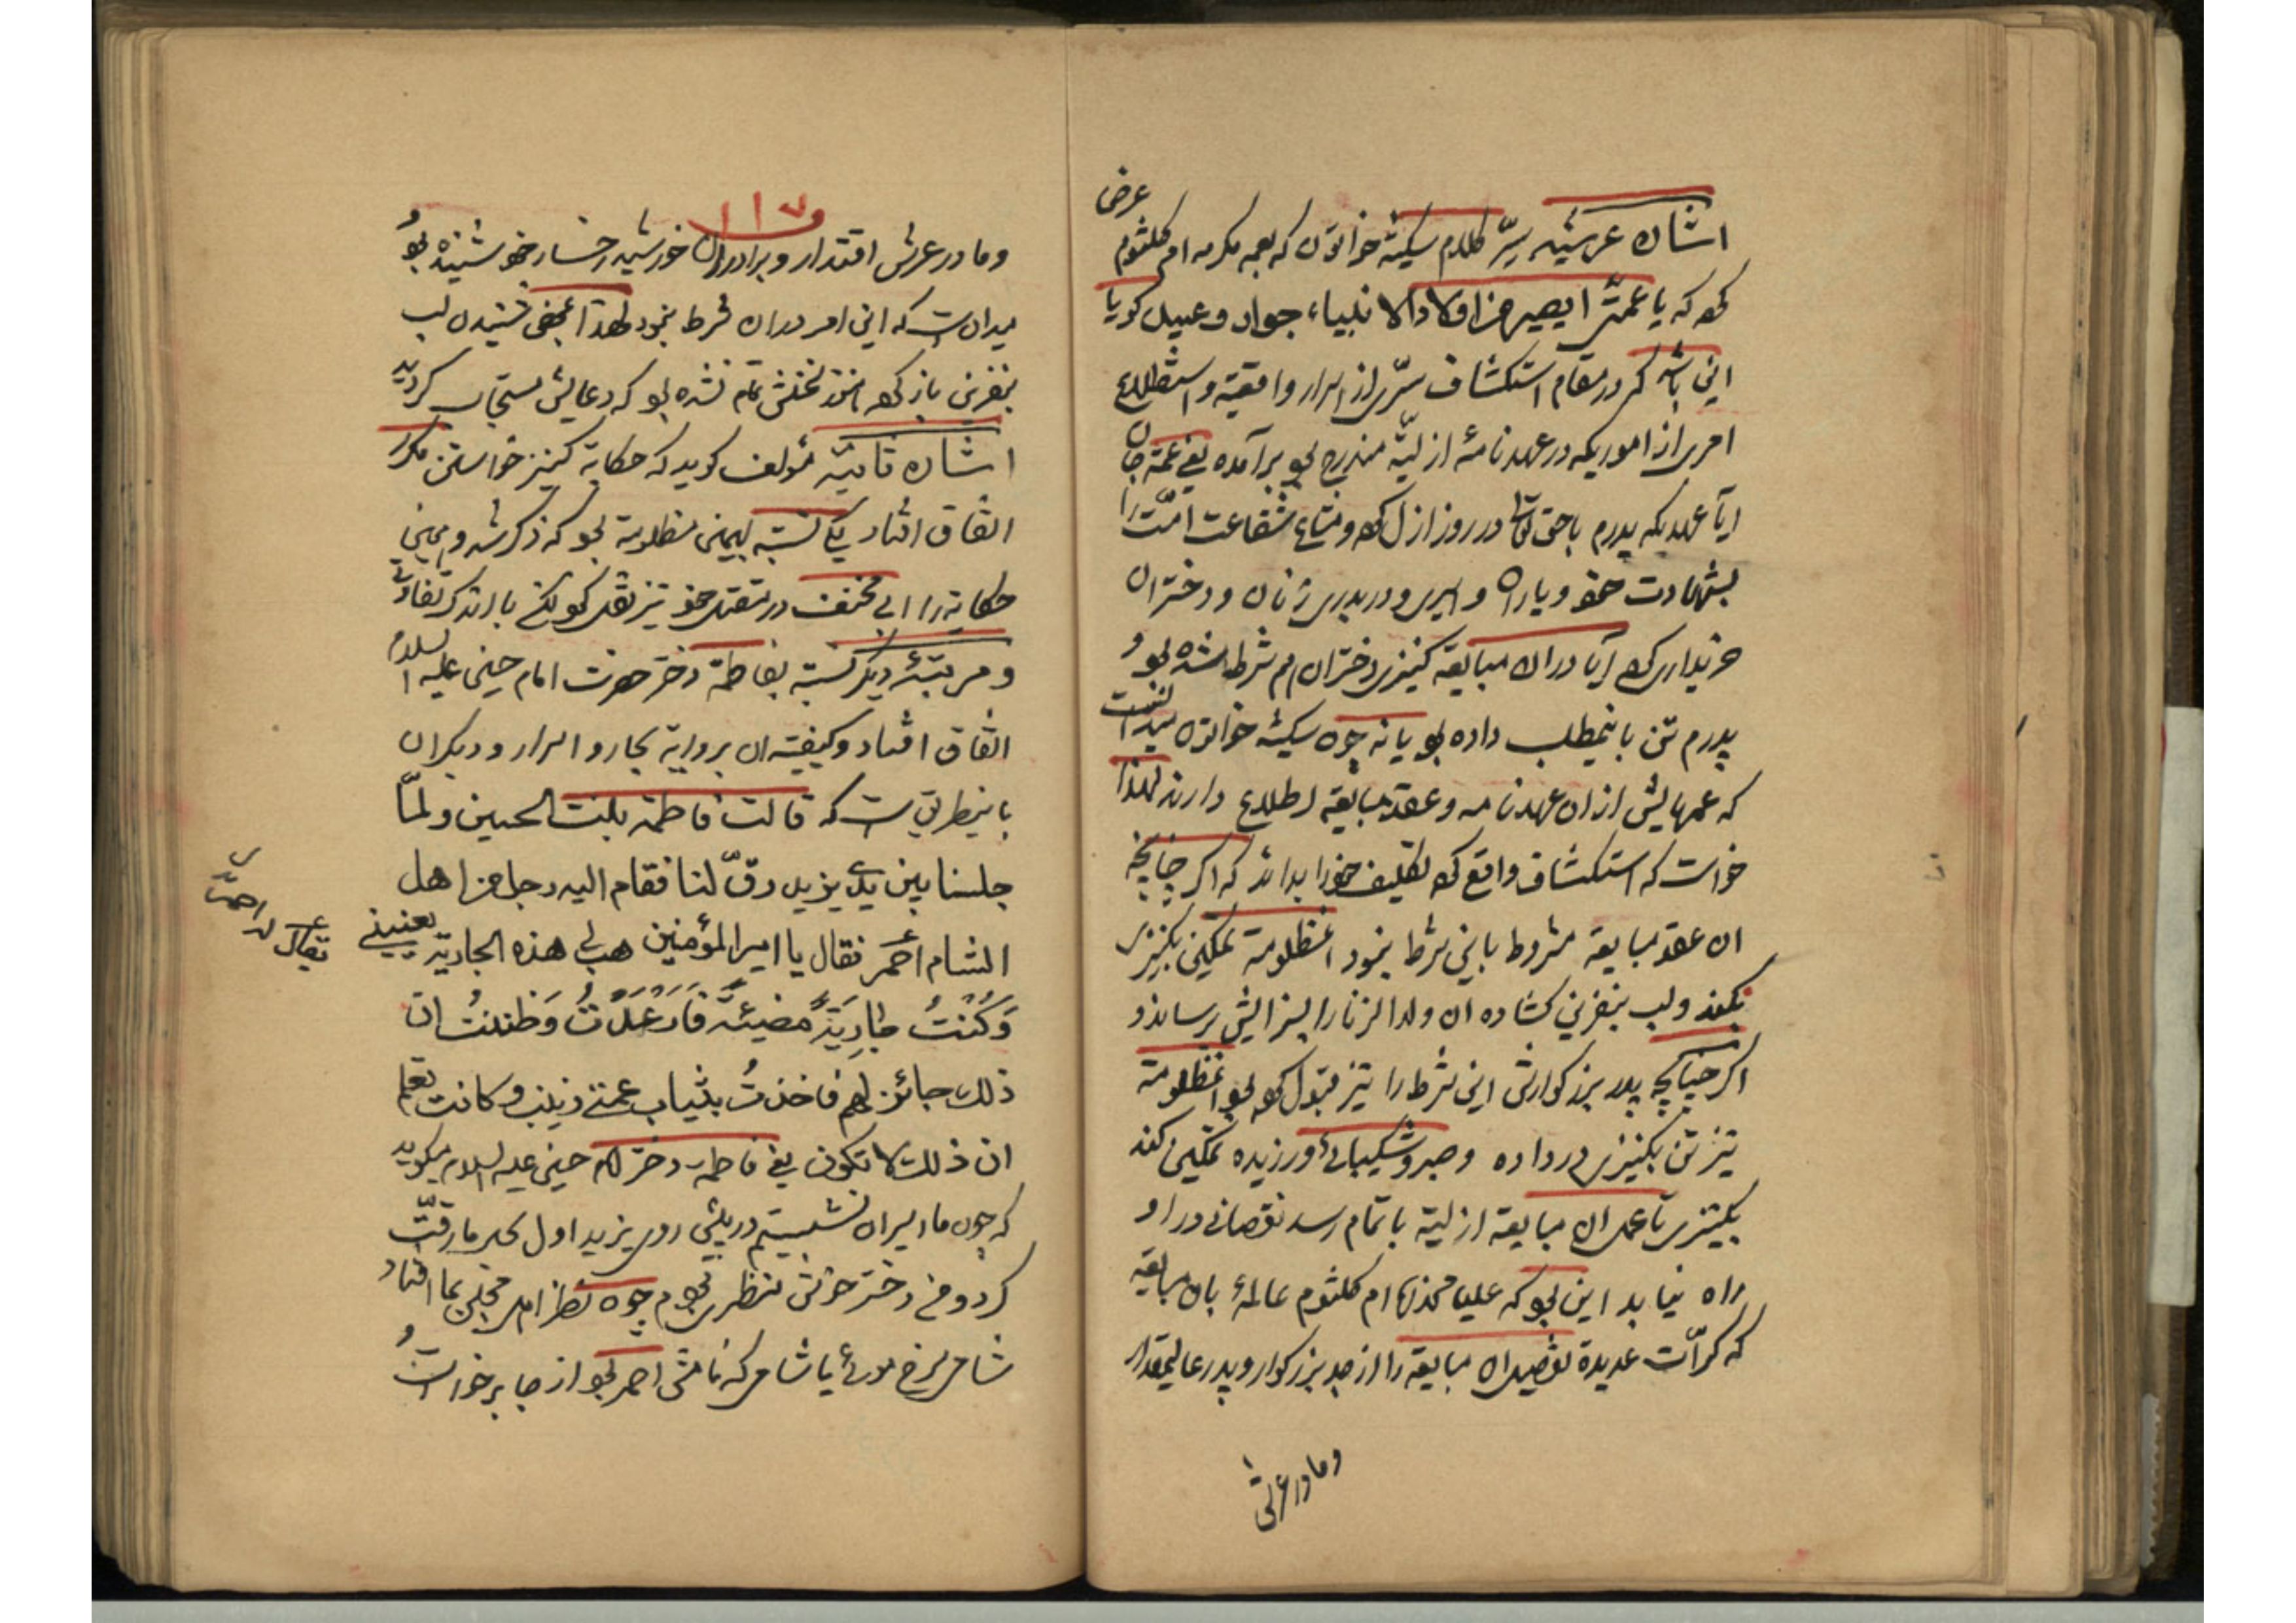 اشاره عرشیه سرّ کلام سکینه خواتون که بعمه مکرمه ام کلثوم عرض
کرده که یا عمتی ا یصیر هذا اولاد الانبیاء جواب وعبید کویا
این باشد که در مقام استکشاف سرّی از اسرار واقعیه و استطلاع
امری از اموریکه در عهدنامهٔ ازلیّه مندرج بود برآمده یعنی عمّه جان
ایا عهدیکه پدرم باحق تعالی در روز ازل کرده ومتاع شفاعت امّت را
بشهادت خود ویاران و اسیری و دربدری زنان و دختران
خریداری کرده آیا در ان مبایعه کنیزی دختران هم شرط شده بود و
پدرم تن باینمطلب داده بود یا نه چون سکینه خواتون میدانست
که عمهایش از ان عهدنامه وعقد مبایعه اطلاع دارند لهذا
خواست که استکشاف واقع کرده تکلیف خود را بداند که اکر چنانچه
ان عقد مبایعه مشروط باین شرط نبود انمظلومة تمکین بکنیزی
نکند و لب بنفرین کشاده ان ولد الزنا را بسزایش برساند و
اکر چنانچه پدر بزرکوارش این شرط را نیز قبول کرده بود انمظلومة
نیز تن بکنیزی در داده وصبر وشکیبائی ورزیده تمکین کند
بکنیزی تا عمل ان مبایعه ازلیة باتمام رسد نقصانی در او
راه نیابد این بود که علیا مخدره ام کلثوم عالمهٔ بان مبایعه
که کرّات عدیدة تفصیل ان مبایعه را از جد بزرکوار وپدر عالیمقدار
ومادر عرش
۱۱۷
ومادر عرش اقتدار وبرادران خورشید رخسار خود شنیده بود
میدانست که این امر در ان شرط نبود لهذا بمحض شنیدن لب
بنفرین باز کرده هنوز سخنش تمام نشده بود که دعایش مستجاب کردید
اشاره ثانیّه مؤلف کوید که حکایة کنیز خواستن مکرر
اتفاق افتاد یکی نسبة بهمین مظلومة بود که ذکر شد و همین
حکایة را ابی مخنف در مقتل خود نیز نقل کرده لکن با اندک تفاوتی
ومرتبهٔ دیکر نسبة بفاطمة دختر حضرت امام حسین علیه السلام
اتفاق افتاد وکیفیة ان بروایة بحار و اسرار ودیکران
باینطریق است که قالت فاطمة بنت الحسین ولمّا
جلسنا بین یدی یزید رقّ لنا فقام الیه رجل من اهل
الشام احمر فقال یا امیر المؤمنین هب لی هذه الجاریة یعنینی
یقال له احمر
وَکُنْتُ جاریَةً مضیئةً فَارعدتُ وَظننتُ ان
ذلک جائز لهم فاخذتُ بثیاب عمتی زینب وکانت تعلم
ان ذلک لا تکون یعنی فاطمه دختر امام حسین علیه السلام میکوید
که چون ما اسیران نشستیم در پیش روی یزید اول بحال ما رقّت
کرد و من دختر خوش منظری بودم چون نظر اهل مجلس بما افتاد
شامی سرخ موئی یا شامی که نامش احمر بود از جا برخواست و